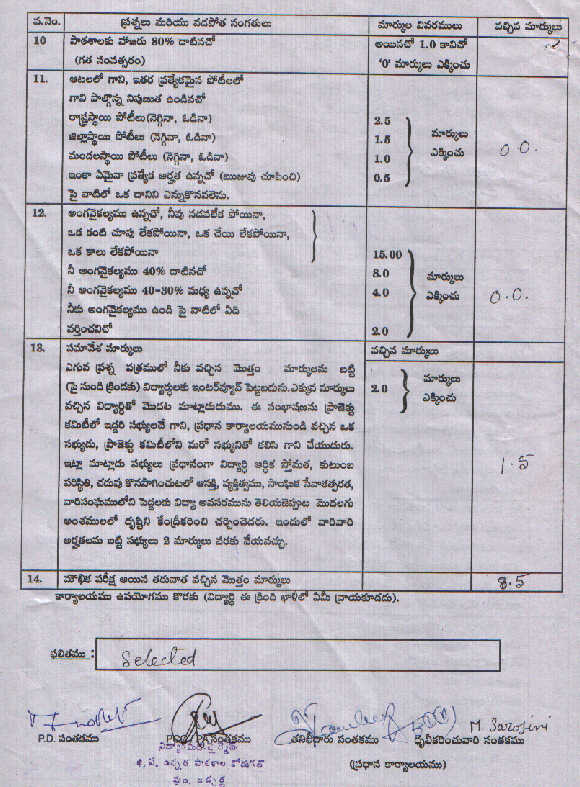 వ.నెం. ప్రశ్నలు మరియు వడపోత సంగతులు మార్కుల వివరములు వచ్చిన మార్కులు
10 పాఠశాలకు హాజరు 80% దాటినచో అయినచో 1.0 కానిచో
(గత సంవత్సరం) '0' మార్కులు ఎక్కించు
11. ఆటలలో గాని, ఇతర ప్రత్యేకమైన పోటీలలో
గాని పాల్గొన్న నిపుణుత ఉండినచో
రాష్ట్రస్థాయి పోటీలు (నెగ్గినా, ఓడినా) 2.5 మార్కులు
జిల్లాస్థాయి పోటీలు (నెగ్గినా, ఓడినా) 1.5 ఎక్కించు 0 0.
మండలస్థాయి పోటీలు (నెగ్గినా, ఓడినా) 1.0
ఇంకా ఏమైనా ప్రత్యేక అర్హత ఉన్నచో (ఋజువు చూపించి) 0.5
పై వాటిలో ఒక దానిని ఎన్నుకొనవలెను.
12. అంగవైకల్యము ఉన్నచో, నీవు నడవలేక పోయినా,
ఒక కంటి చూపు లేకపోయినా, ఒక చేయి లేకపోయినా,
ఒక కాలు లేకపోయినా 15.00
నీ అంగవైకల్యము 40% దాటినచో 8.0 మార్కులు
నీ అంగవైకల్యము 40-30% మధ్య ఉన్నచో 4.0 ఎక్కించు 0.0.
నీకు అంగవైకల్యము ఉండి పై వాటిలో ఏది
వర్తించనిచో 2.0
13. సమావేశ మార్కులు వచ్చిన మార్కులు
ఎగువ ప్రశ్న పత్రములో నీకు వచ్చిన మొత్తం మార్కులను బట్టి మార్కులు
(పై నుండి క్రిందకు) విద్యార్థులకు ఇంటర్వ్యూవ్ పెట్టబడును. ఎక్కువ మార్కులు 2.0 ఎక్కించు
వచ్చిన విద్యార్థితో మొదట మాట్లాడుదుము. ఈ సంభాషణను ప్రాజెక్టు
కమిటీలో ఇద్దరి సభ్యులచే గాని, ప్రధాన కార్యాలయమునుండి వచ్చిన ఒక
సభ్యుడు, ప్రాజెక్టు కమిటీలోని మరో సభ్యునితో కలిసి గాని చేయుదురు.
ఇట్లా మాట్లాడు సభ్యులు ప్రధానంగా విద్యార్థి ఆర్థిక స్తోమత, కుటుంబ 1.5
పరిస్థితి, చదువు కొనసాగించుటలో ఆసక్తి, వ్యక్తిత్వము, సాంఘిక సేవాతత్పరత,
వారిసంఘములోని పెద్దలకు విద్యా అవసరమును తెలియజెప్పుట మొదలగు
అంశములలో దృష్టిని కేంద్రీకరించి చర్చించెదరు. ఇందులో వారివారి
అర్హతలను బట్టి సభ్యులు 2 మార్కులు వరకు వేయవచ్చు.
14. మౌఖిక పరీక్ష అయిన తరువాత వచ్చిన మొత్తం మార్కులు 8.5
కార్యాలయము ఉపయోగము కొరకు (విద్యార్థి ఈ క్రింది ఖాళీలో ఏమీ వ్రాయకూడదు).
ఫలితము : Selected
M. Sarojini
P.D. సంతకము సంతకము తనిఖీదారు సంతకము ధృవీకరించువారి సంతకము
(ప్రధాన కార్యాలయము)